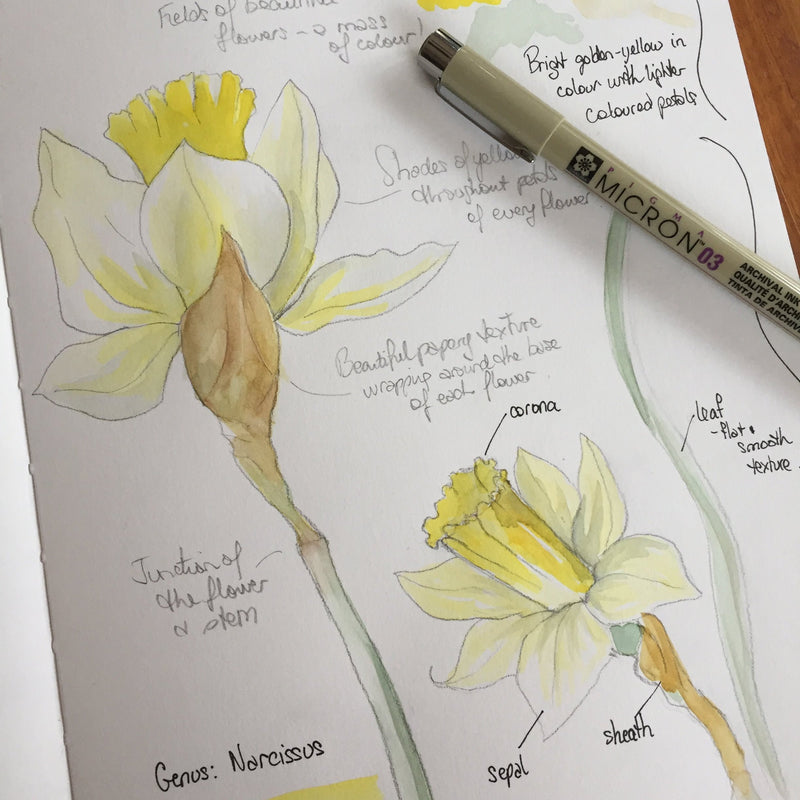 Fields of beautiful
flowers - a mass
of colour!
Bright golden-yellow in
colour with lighter
coloured petals
Shades of yellow
throughout petals
of every flower
PIGMA
MICRON™ 03
ARCHIVAL INK
QUALITÉ D'ARCH
TINTA DE ARCHIV
Beautiful papery texture
wrapping around the base
of each flower.
corona
leaf
- flat &
smooth
texture.
Junction of
the flower
& stem
sheath
sepal
Genus: Narcissus